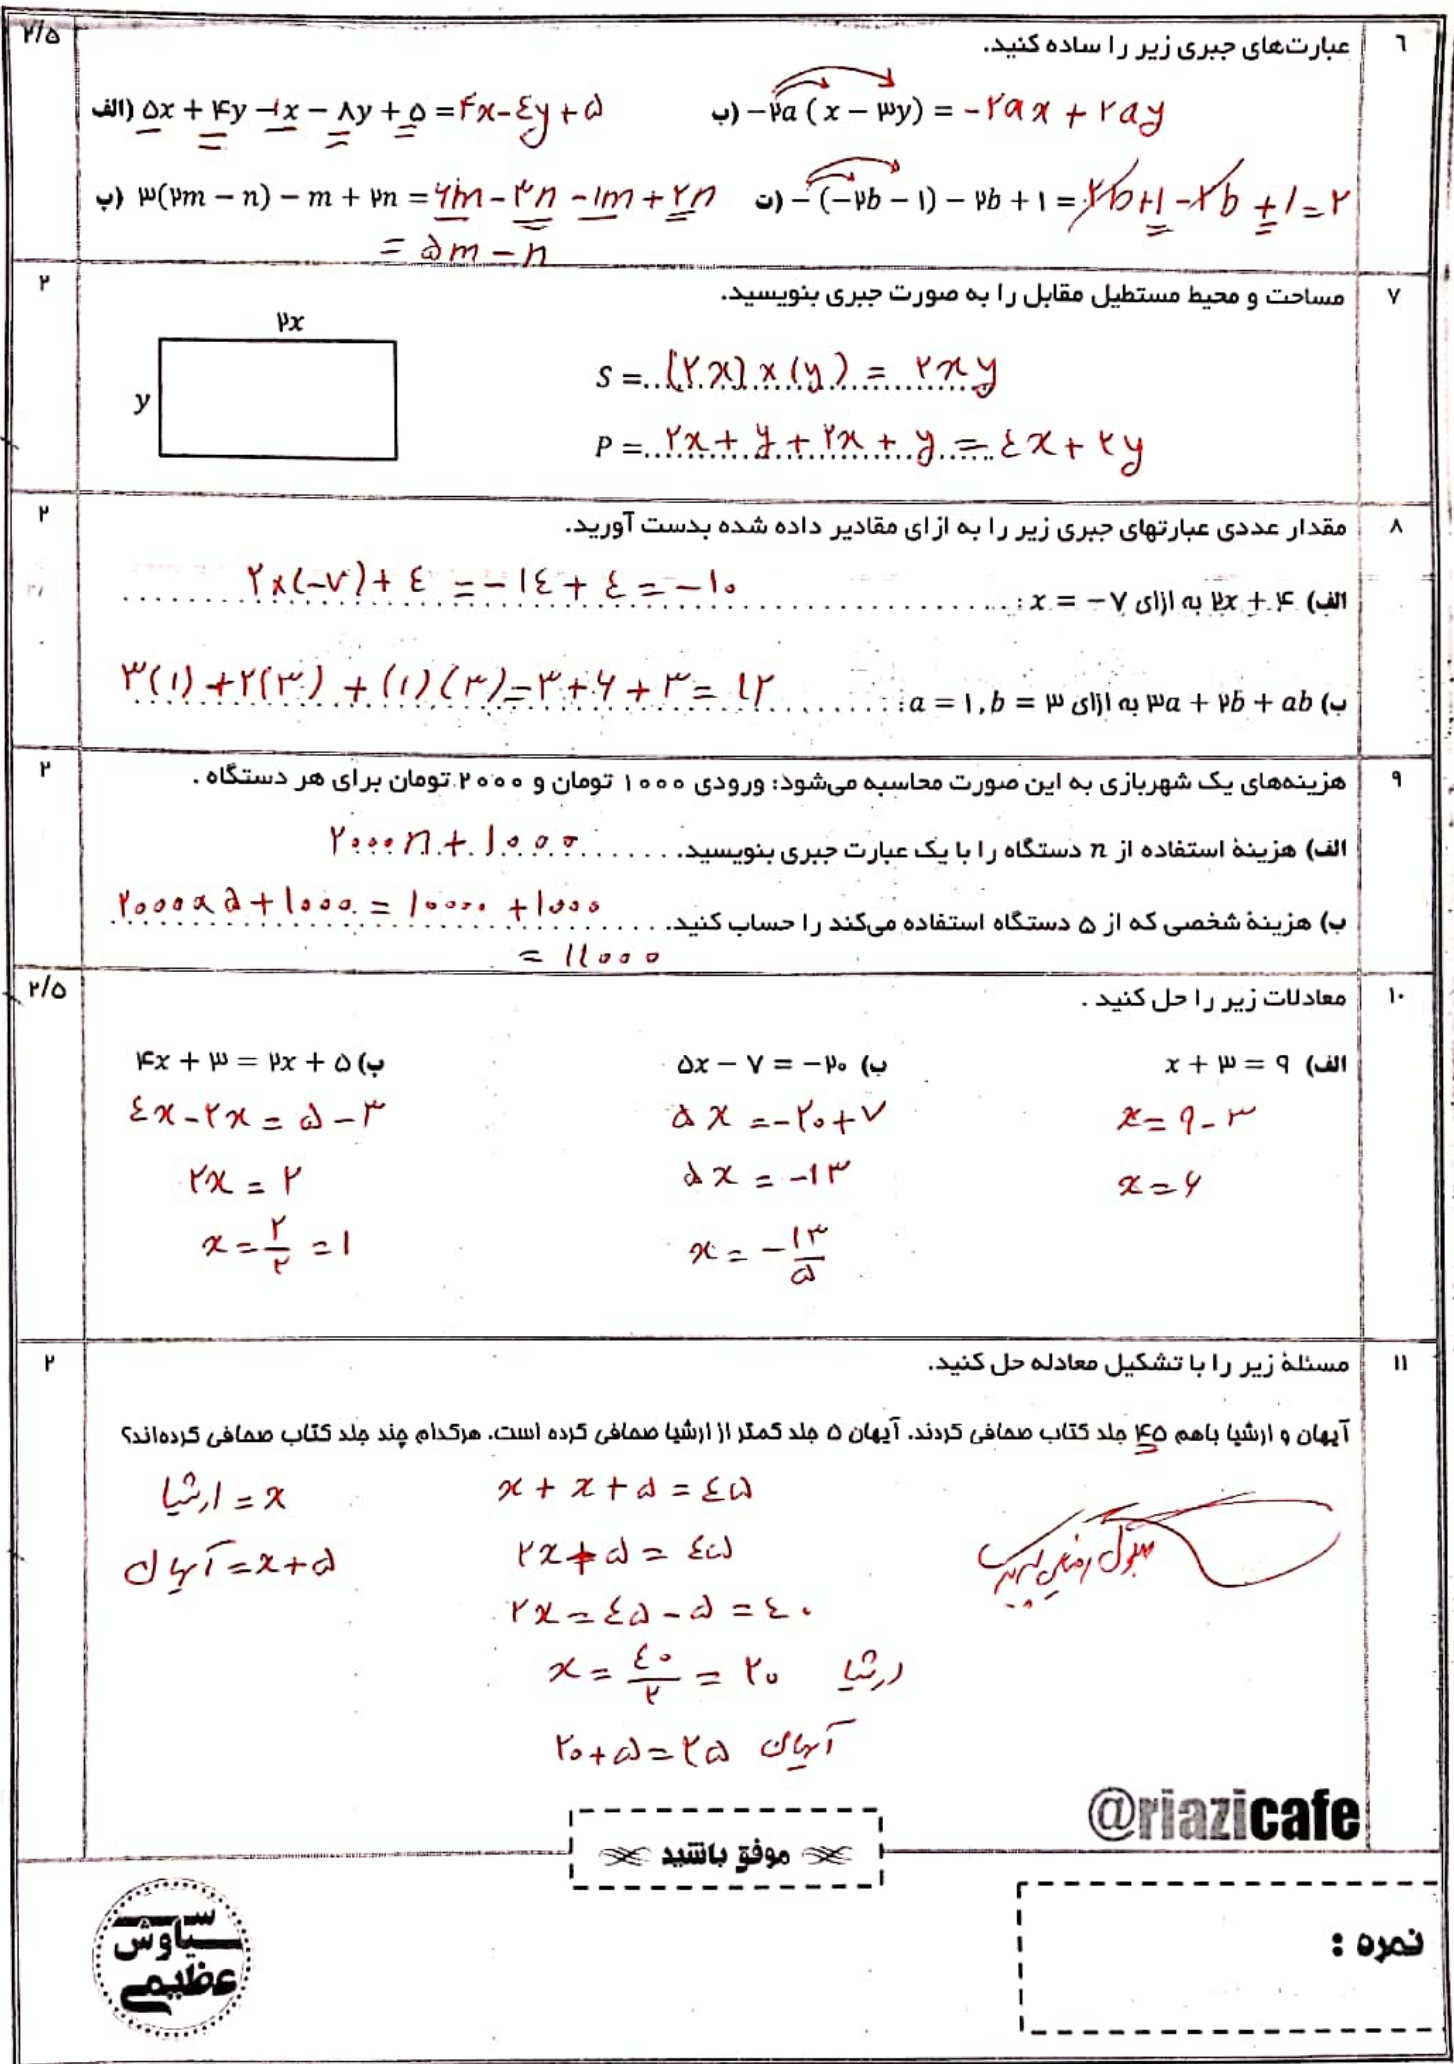 ۶ عبارت‌های جبری زیر را ساده کنید. ۲/۵
الف) ۵x + ۴y −۱x − ۸y + ۵ = ۴x-٤y+۵
ب) −۲a (x − ۳y) = -۲ax + ۲ay
پ) ۳(۲m − n) − m + ۲n = ۶m-۳n-۱m+۲n
= ۵m-n
ت) −(−۲b − ۱) − ۲b + ۱ = ۲b+۱-۲b+۱=۲
۷ مساحت و محیط مستطیل مقابل را به صورت جبری بنویسید. ۲
۲x
y
S =...(۲x)×(y) = ۲xy
P =...۲x+y+۲x+y = ٤x+۲y
۸ مقدار عددی عبارتهای جبری زیر را به ازای مقادیر داده شده بدست آورید. ۲
الف) ۲x + ۴ به ازای x = −۷ : ۲×(-۷)+٤ = -۱٤+٤=-۱۰
ب) ۳a + ۲b + ab به ازای a = ۱, b = ۳ : ۳(۱)+۲(۳)+(۱)(۳)=۳+۶+۳=۱۲
۹ هزینه‌های یک شهربازی به این صورت محاسبه می‌شود: ورودی ۱۰۰۰ تومان و ۲۰۰۰ تومان برای هر دستگاه .
۲
الف) هزینهٔ استفاده از n دستگاه را با یک عبارت جبری بنویسید. ۲۰۰۰n+۱۰۰۰
ب) هزینهٔ شخصی که از ۵ دستگاه استفاده می‌کند را حساب کنید. ۲۰۰۰×۵+۱۰۰۰ = ۱۰۰۰۰+۱۰۰۰
= ۱۱۰۰۰
۱۰ معادلات زیر را حل کنید . ۲/۵
الف) x + ۳ = ۹
x=۹-۳
x=۶
ب) ۵x − ۷ = −۲۰
۵x =-۲۰+۷
۵x = -۱۳
x = -۱۳/۵
پ) ۴x + ۳ = ۲x + ۵
٤x-۲x = ۵-۳
۲x = ۲
x = ۲/۲ = ۱
۱۱ مسئلهٔ زیر را با تشکیل معادله حل کنید. ۲
آیهان و ارشیا باهم ۴۵ جلد کتاب صحافی کردند. آیهان ۵ جلد کمتر از ارشیا صحافی کرده است. هرکدام چند جلد کتاب صحافی کرده‌اند؟
ارشیا = x
آیهان = x+۵
x + x + ۵ = ٤۵
۲x + ۵ = ٤۵
۲x = ٤۵ - ۵ = ٤۰
x = ٤۰/۲ = ۲۰ ارشیا
۲۰+۵=۲۵ آیهان
@riazicafe
موفق باشید
نمره :
سیاوش
عظیمی